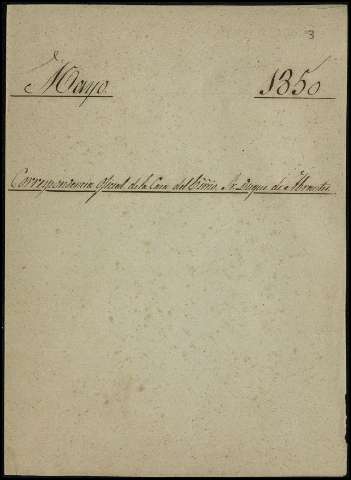 3
Mayo. 1850
Correspondencia oficial de la Casa del Exmo. Sr. Duque de Abrantes.